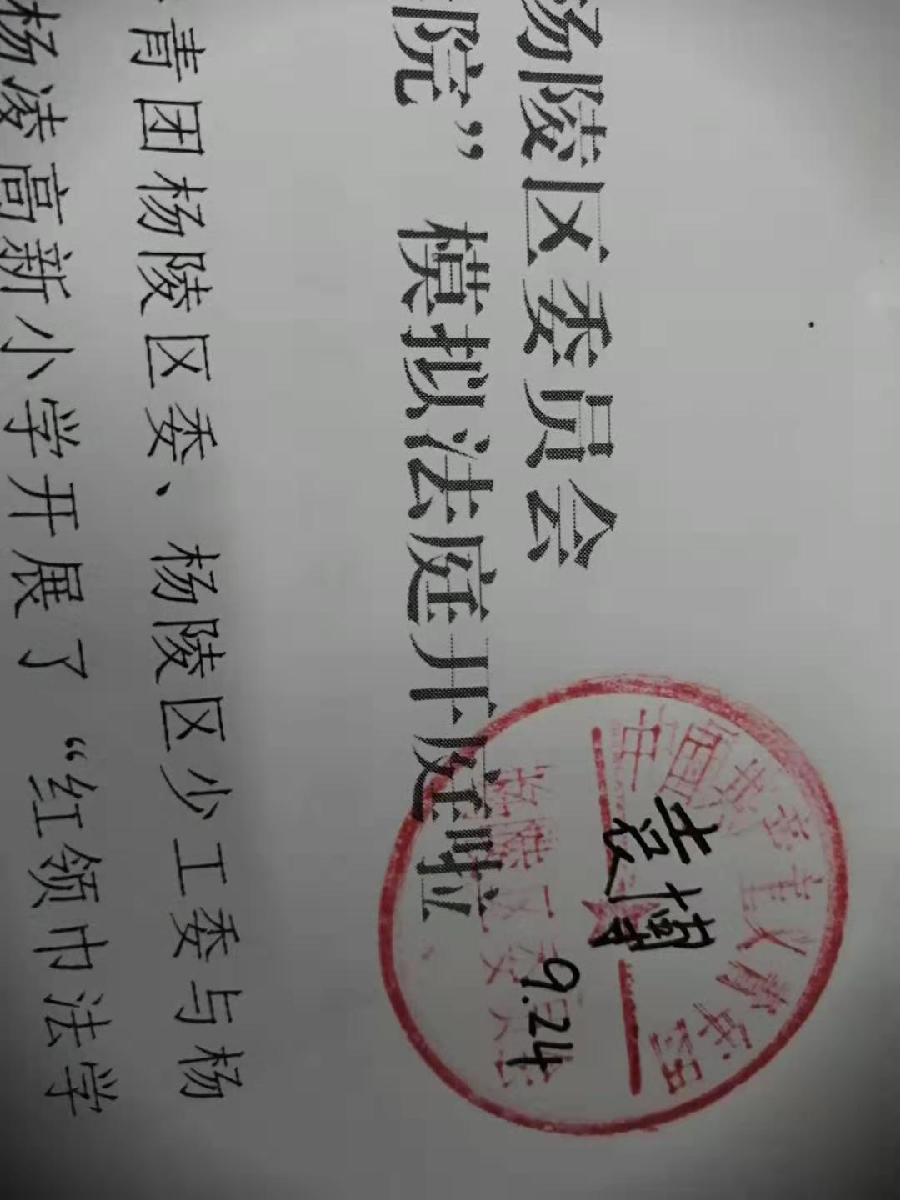 杨陵区委员会
院”模拟法庭开庭啦
青团杨陵区委、杨陵区少工委与杨
杨凌高新小学开展了“红领巾法学
中国共产主义青年团
杨陵区委员会
袁博
9.24